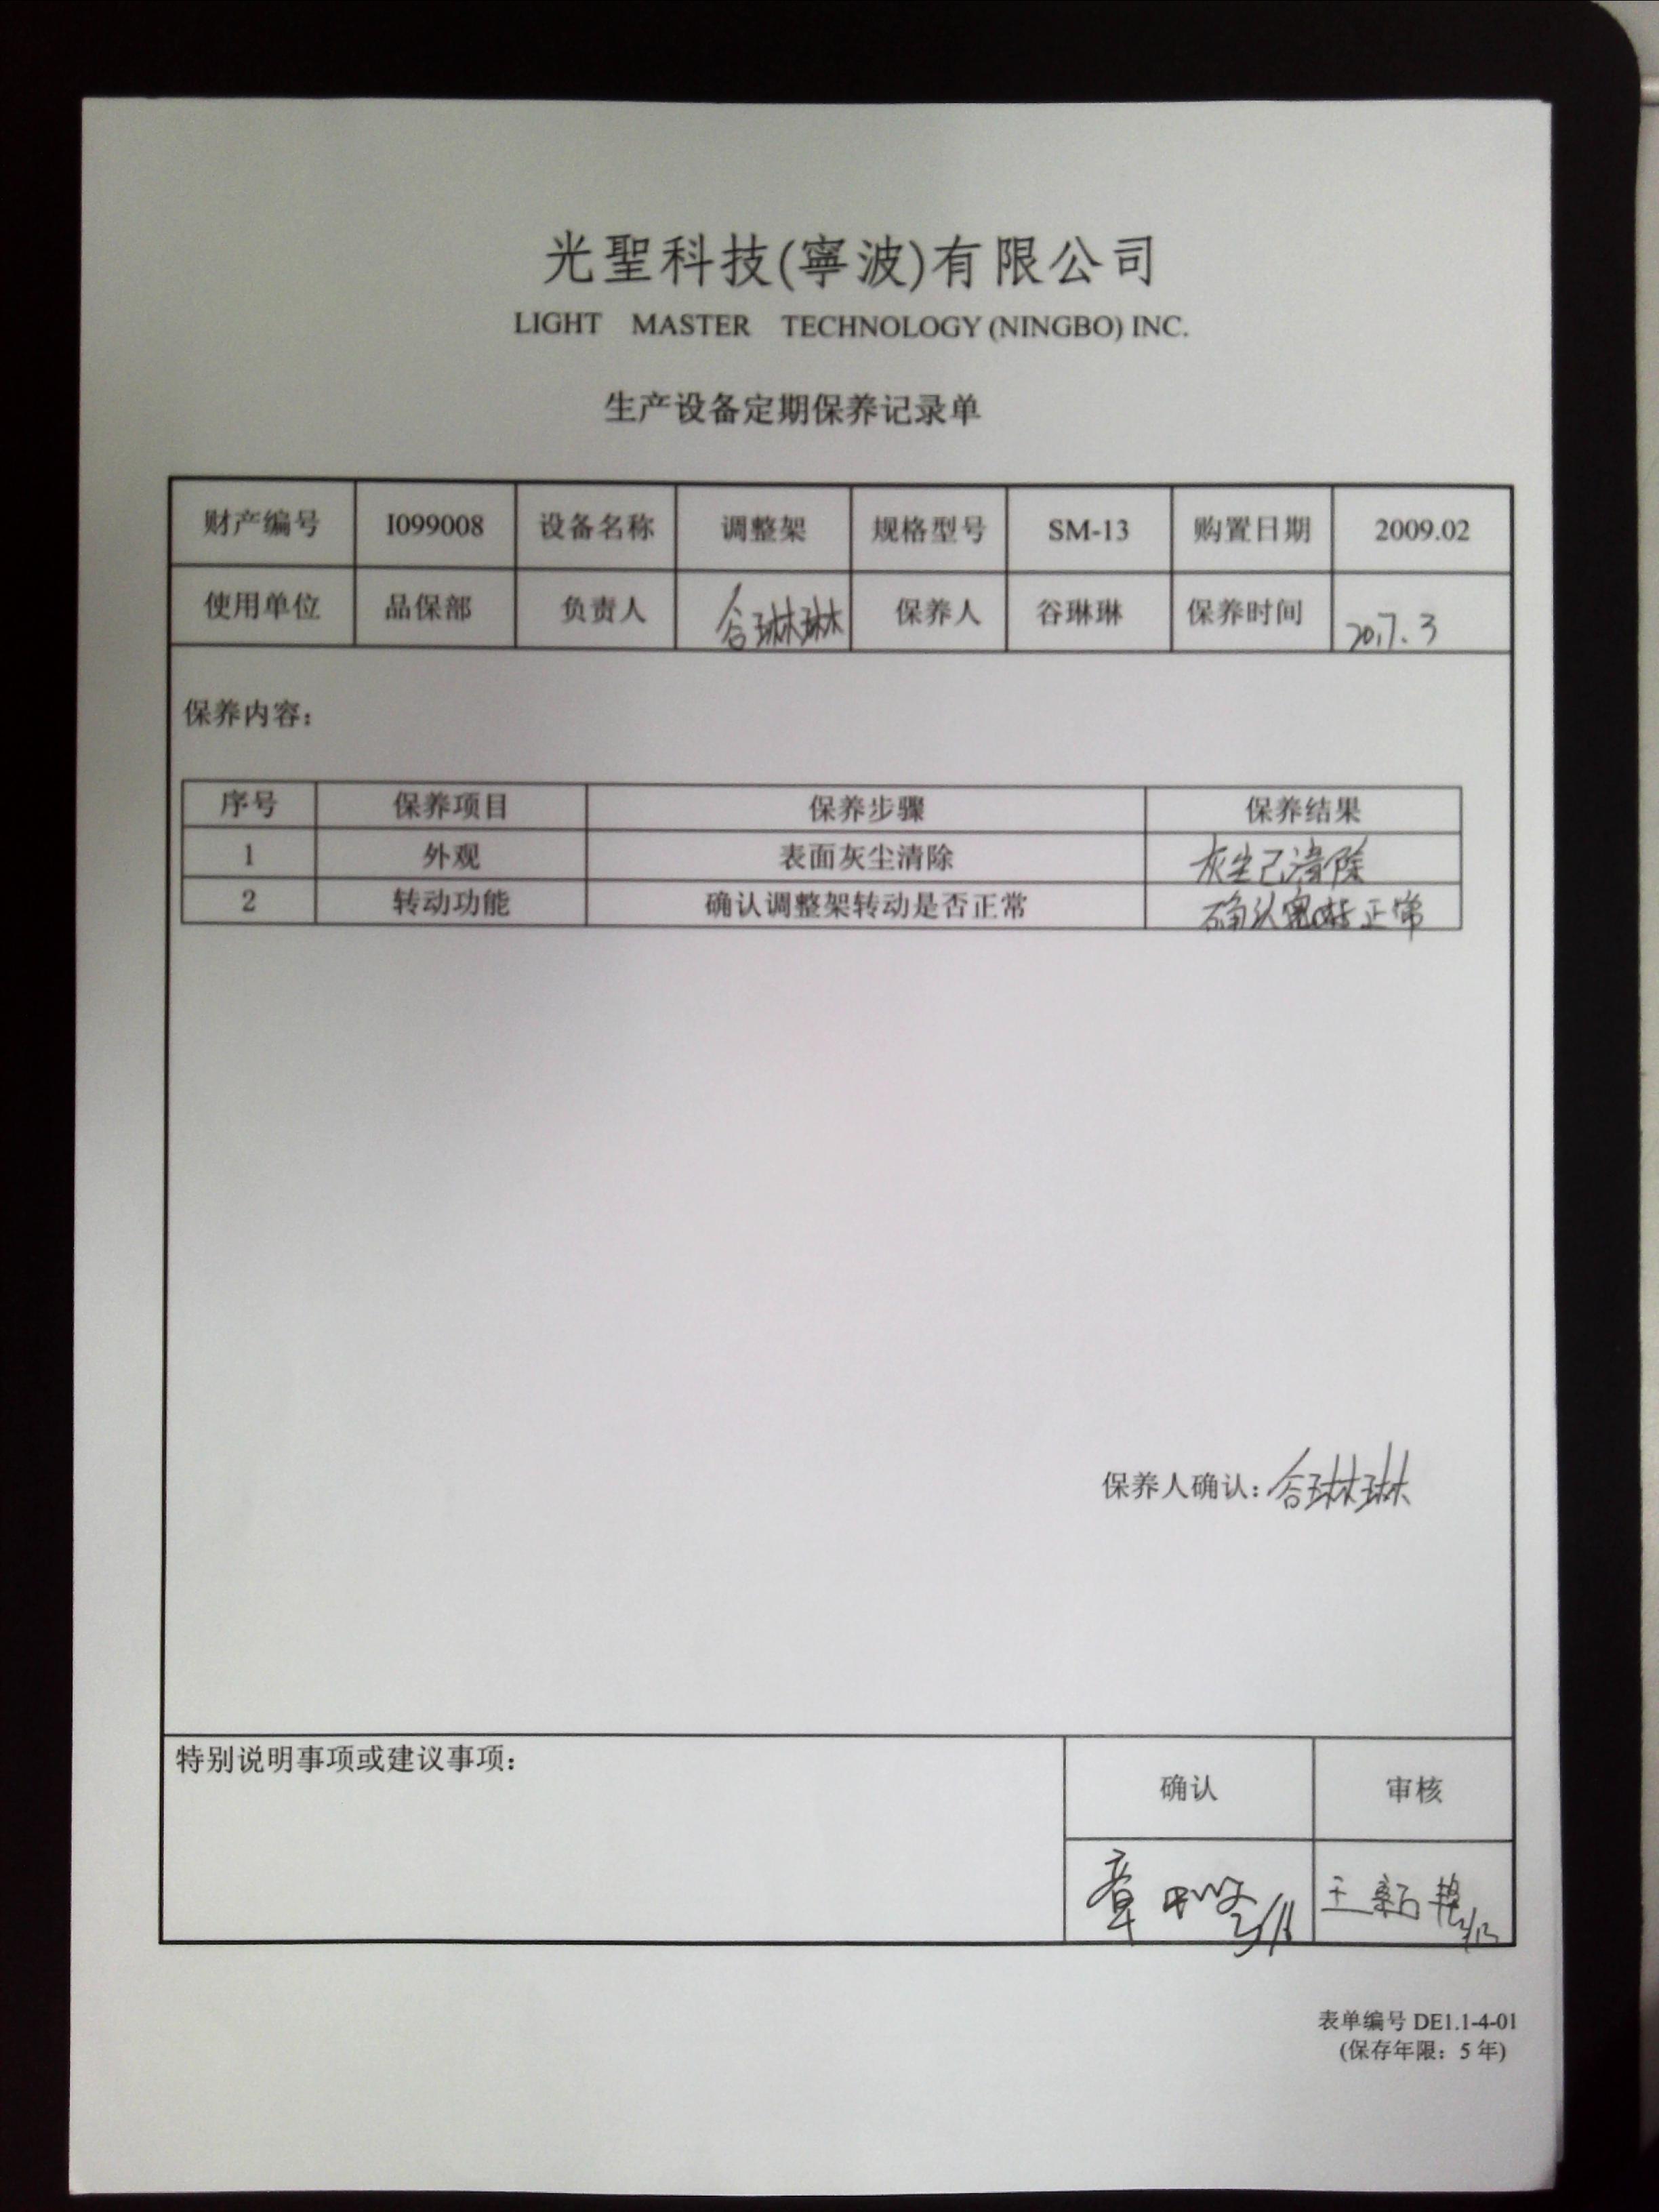 光聖科技(寧波)有限公司
LIGHT MASTER TECHNOLOGY (NINGBO) INC.
生产设备定期保养记录单
财产编号 I099008 设备名称 调整架 规格型号 SM-13 购置日期 2009.02
使用单位 品保部 负责人 谷琳琳 保养人 谷琳琳 保养时间 2017.3
保养内容：
序号 保养项目 保养步骤 保养结果
1 外观 表面灰尘清除 灰尘已清除
2 转动功能 确认调整架转动是否正常 确认 正常
保养人确认：谷琳琳
特别说明事项或建议事项：
确认 审核
章 王
表单编号 DE1.1-4-01
(保存年限：5 年)